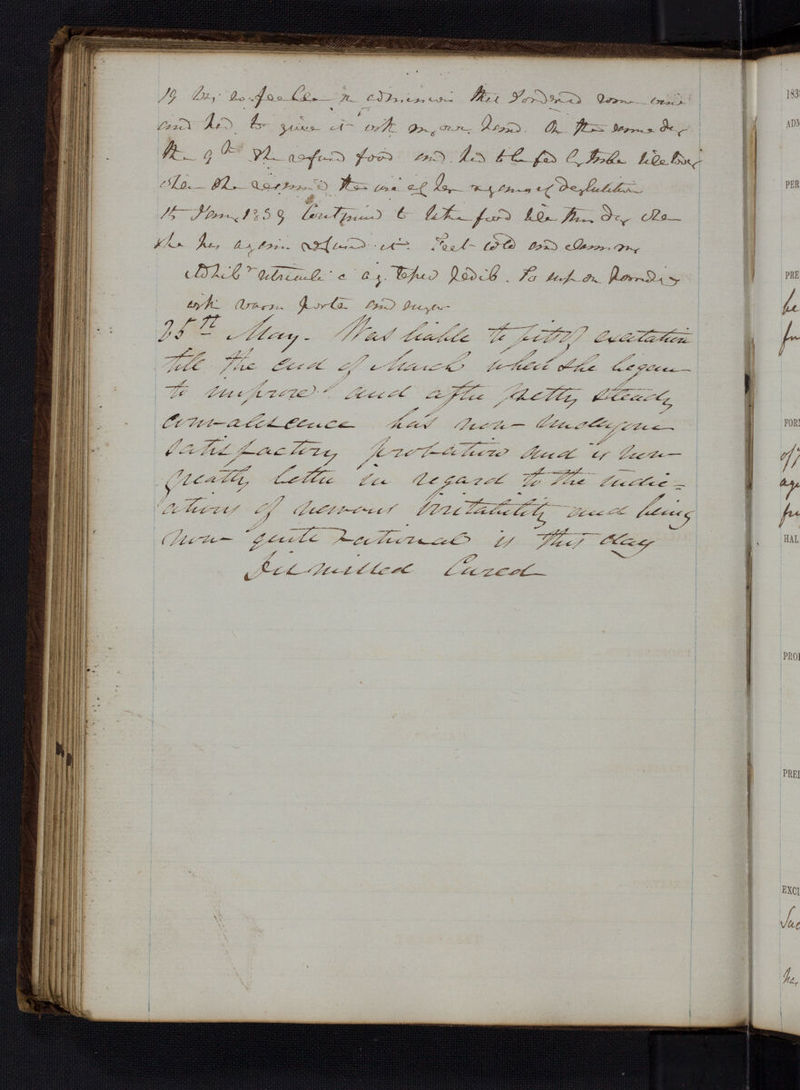 19 Dec so feeble on admission that I ordered some wine
and had to give it with my own hand. On the same day
the 9th she refused food and had to be fed by tube till today
when she resumed the use of her organs of deglutition
15 Jany 1839 Continued to take food till this day when
she has again refused it. Feet cold and clammy
Adhibr utriculi c aq. tepid pedib. To sup on
with warm porter and sugar
25th May. Was liable to fits of excitation
till the end of March when she began
to improve and after pretty steady
convalescence has now undergone
satisfactory probation and is now
greatly better in regard to the indic=
ations of nervous irritability and being
now quite rational is this day
Dismissed Cured
183
ADM
PER
PRE
he
FOR
of
HAL
PROI
PREI
EXCI